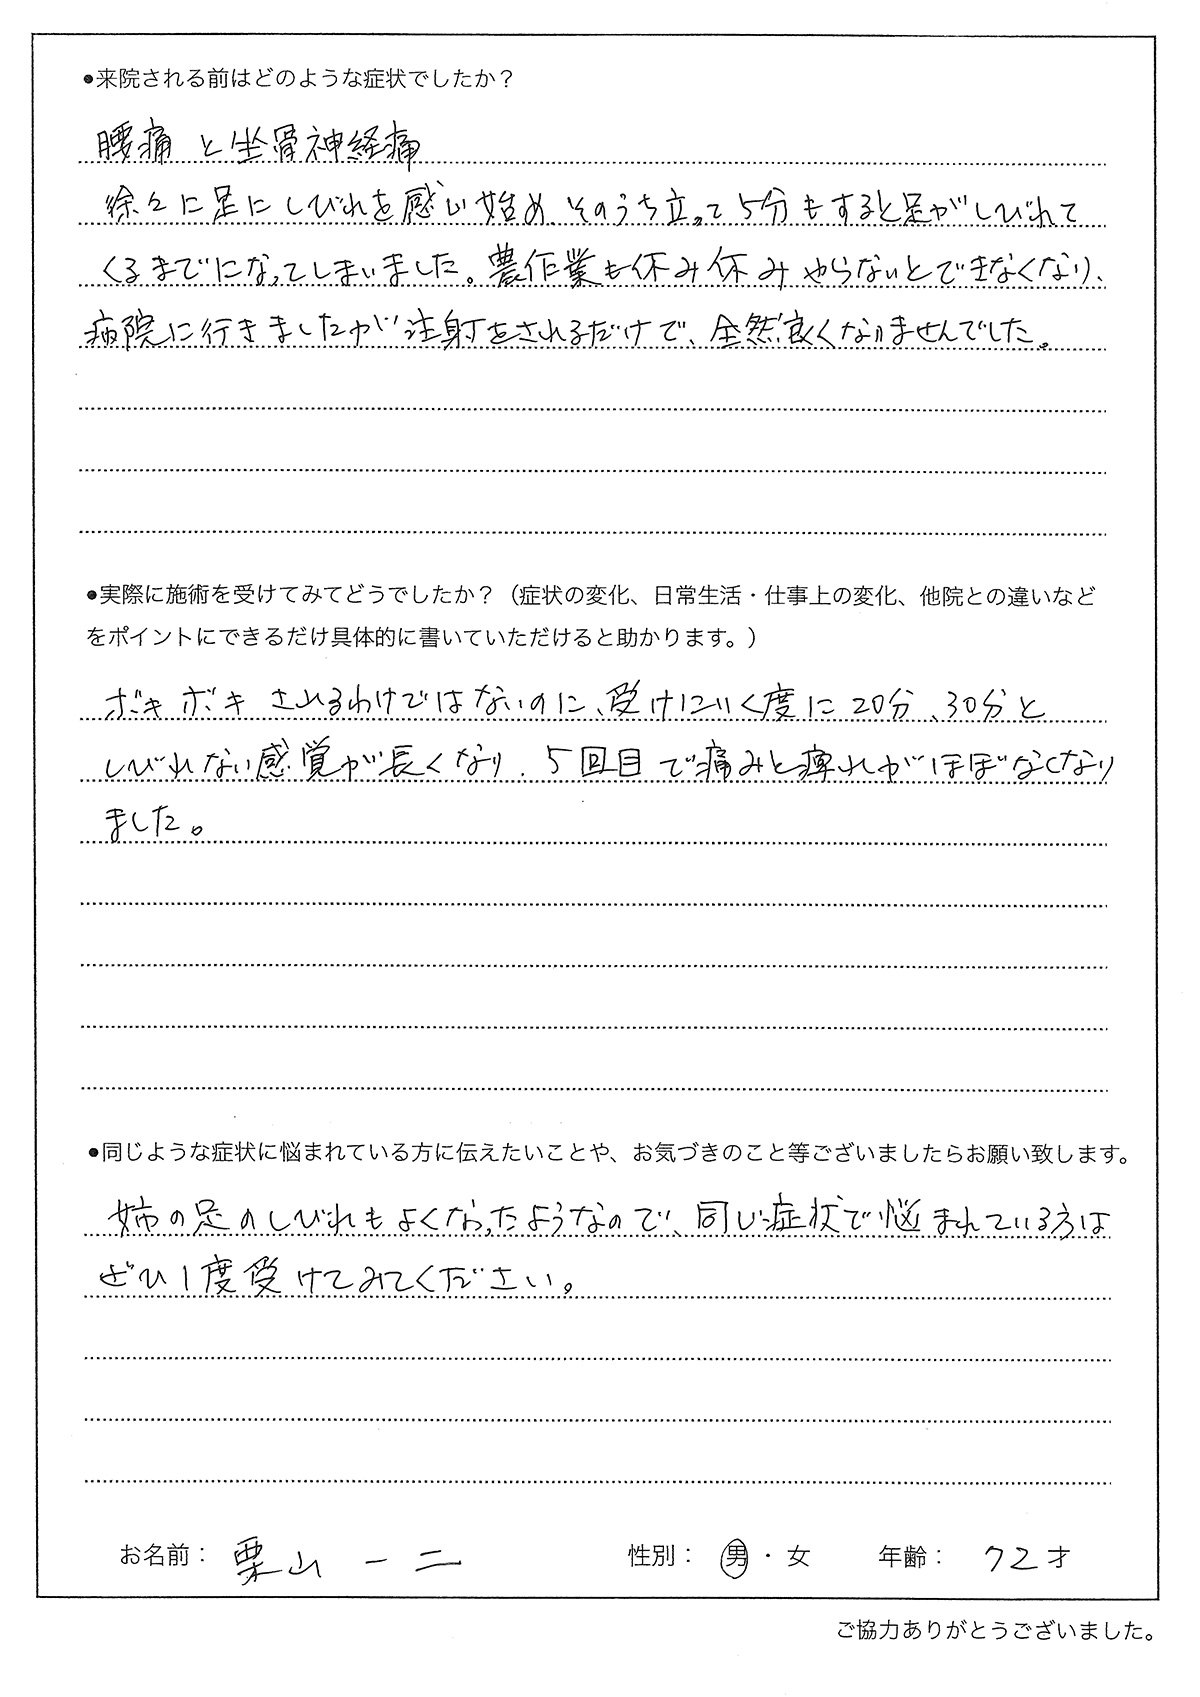 ●来院される前はどのような症状でしたか？
腰痛と坐骨神経痛
徐々に足にしびれを感じ始め、そのうち立って5分もすると足がしびれて
くるまでになってしまいました。農作業も休み休みやらないとできなくなり、
病院に行きましたが注射をされるだけで、全然良くなりませんでした。
●実際に施術を受けてみてどうでしたか？（症状の変化、日常生活・仕事上の変化、他院との違いなど
をポイントにできるだけ具体的に書いていただけると助かります。）
ボキボキされるわけではないのに、受けにいく度に20分、30分と
しびれない感覚が長くなり、5回目で痛みと痺れがほぼなくなり
ました。
●同じような症状に悩まれている方に伝えたいことや、お気づきのこと等ございましたらお願い致します。
姉の足のしびれもよくなったようなので、同じ症状で悩まれている方は
ぜひ1度受けてみてください。
お名前： 栗山 一二 性別： 男・女 年齢： 72才
ご協力ありがとうございました。